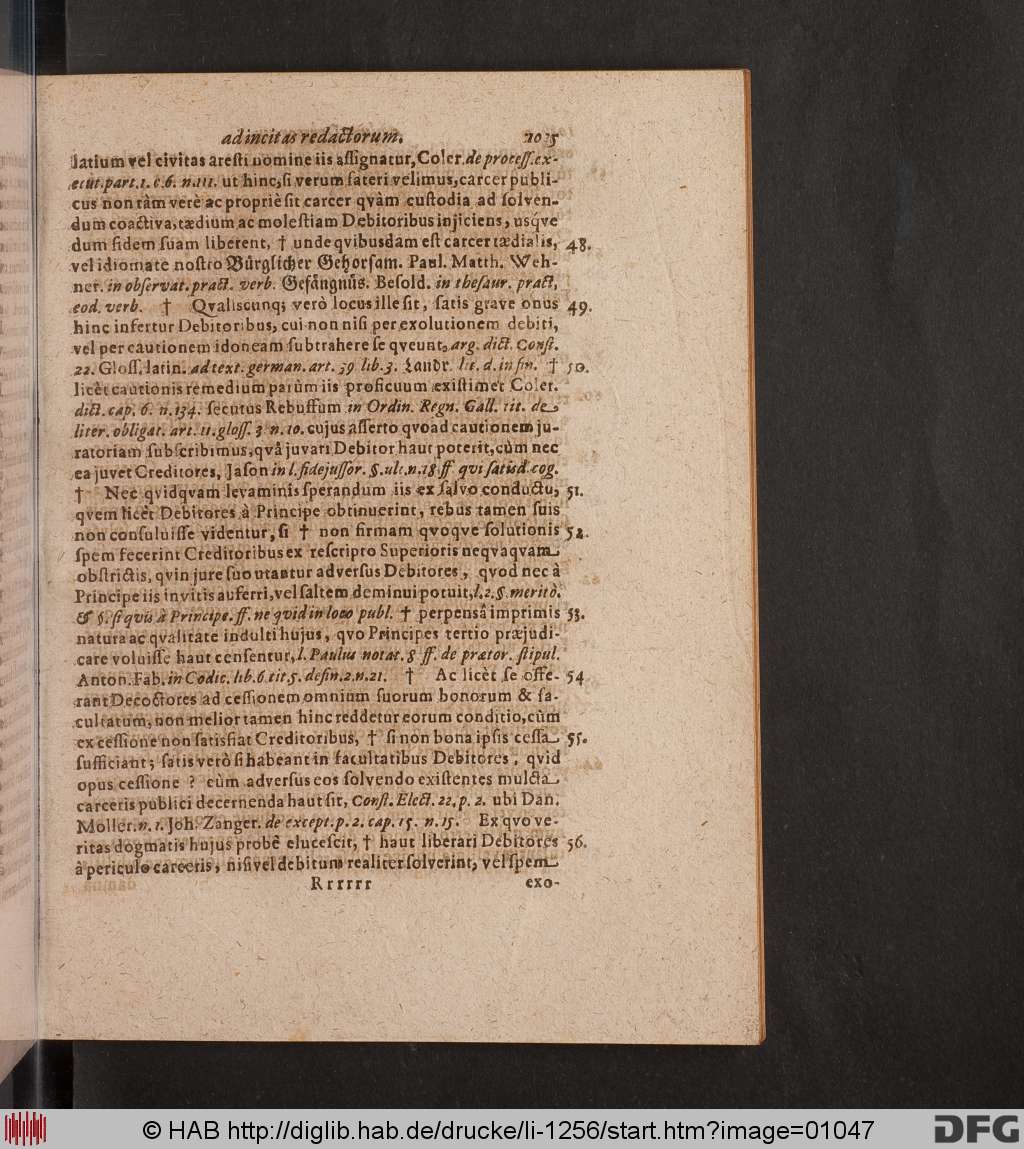 ad incitas redactorum. 1035
latium vel civitas aresti nomine iis assignatur, Coler. de process. ex-
ecut. part. 1. c. 6. n. 111. ut hinc, si verum fateri velimus, carcer publi-
cus non tàm verè ac propriè sit carcer qvàm custodia ad solven-
dum coactiva, tædium ac molestiam Debitoribus injiciens, usq́ve
dum fidem suam liberent, † unde qvibusdam est carcer tædialis, 48.
vel idiomate nostro Bürglicher Gehorsam. Paul. Matth. Weh-
ner. in observat. pract. verb. Gefängnüs. Besold. in thesaur. pract.
eod. verb. † Qvaliscunq; verò locus ille sit, satis grave onus 49.
hinc infertur Debitoribus, cui non nisi per exolutionem debiti,
vel per cautionem idoneam subtrahere se qveunt, arg. dict. Const.
22. Gloss. latin. ad text. german. art. 39 lib. 3. Landr. lit. d. in fin. † 50.
licèt cautionis remedium parùm iis proficuum existimet Coler.
dict. cap. 6. n. 134. secutus Rebuffum in Ordin. Regn. Gall. tit. de
liter. obligat. art. 11. gloss. 3 n. 10. cujus asserto qvoad cautionem ju-
ratoriam subscribimus, qvâ juvari Debitor haut poterit, cùm nec
ea juvet Creditores, Jason in l. fidejussor. §. ult. n. 18 ff. qvi satisd. cog.
† Nec qvidqvam levaminis sperandum iis ex salvo conductu, 51.
qvem licèt Debitores à Principe obtinuerint, rebus tamen suis
non consuluisse videntur, si † non firmam qvoqve solutionis 52.
spem fecerint Creditoribus ex rescripto Superioris neqvaqvam
obstrictis, qvin jure suo utantur adversus Debitores, qvod nec à
Principe iis invitis auferri, vel saltem deminui potuit, l. 2. §. meritò.
& §. si qvis à Principe. ff. ne qvid in loco publ. † perpensâ imprimis 53.
natura ac qvalitate indulti hujus, qvo Principes tertio præjudi-
care voluisse haut censentur, l. Paulus notat. 8 ff. de prætor. stipul.
Anton. Fab. in Codic. lib. 6. tit. 5. defin. 2. n. 21. † Ac licèt se offe- 54
rant Decoctores ad cessionem omnium suorum bonorum & fa-
cultatum, non melior tamen hinc reddetur eorum conditio, cùm
ex cessione non satisfiat Creditoribus, † si non bona ipsis cessa 55.
sufficiant; satis verò si habeant in facultatibus Debitores, qvid
opus cessione ? cùm adversus eos solvendo existentes mulcta
carceris publici decernenda haut sit, Const. Elect. 22. p. 2. ubi Dan.
Moller. n. 1. Joh. Zanger. de except. p. 2. cap. 15. n. 15. Ex qvo ve-
ritas dogmatis hujus probè elucescit, † haut liberari Debitores 56.
à periculo carceris, nisi vel debitum realiter solverint, vel spem
Rrrrrr exo-
© HAB http://diglib.hab.de/drucke/li-1256/start.htm?image=01047
DFG